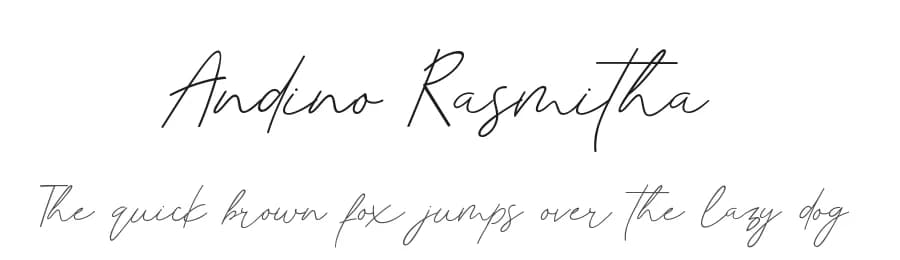 Andino Rasmitha
The quick brown fox jumps over the lazy dog